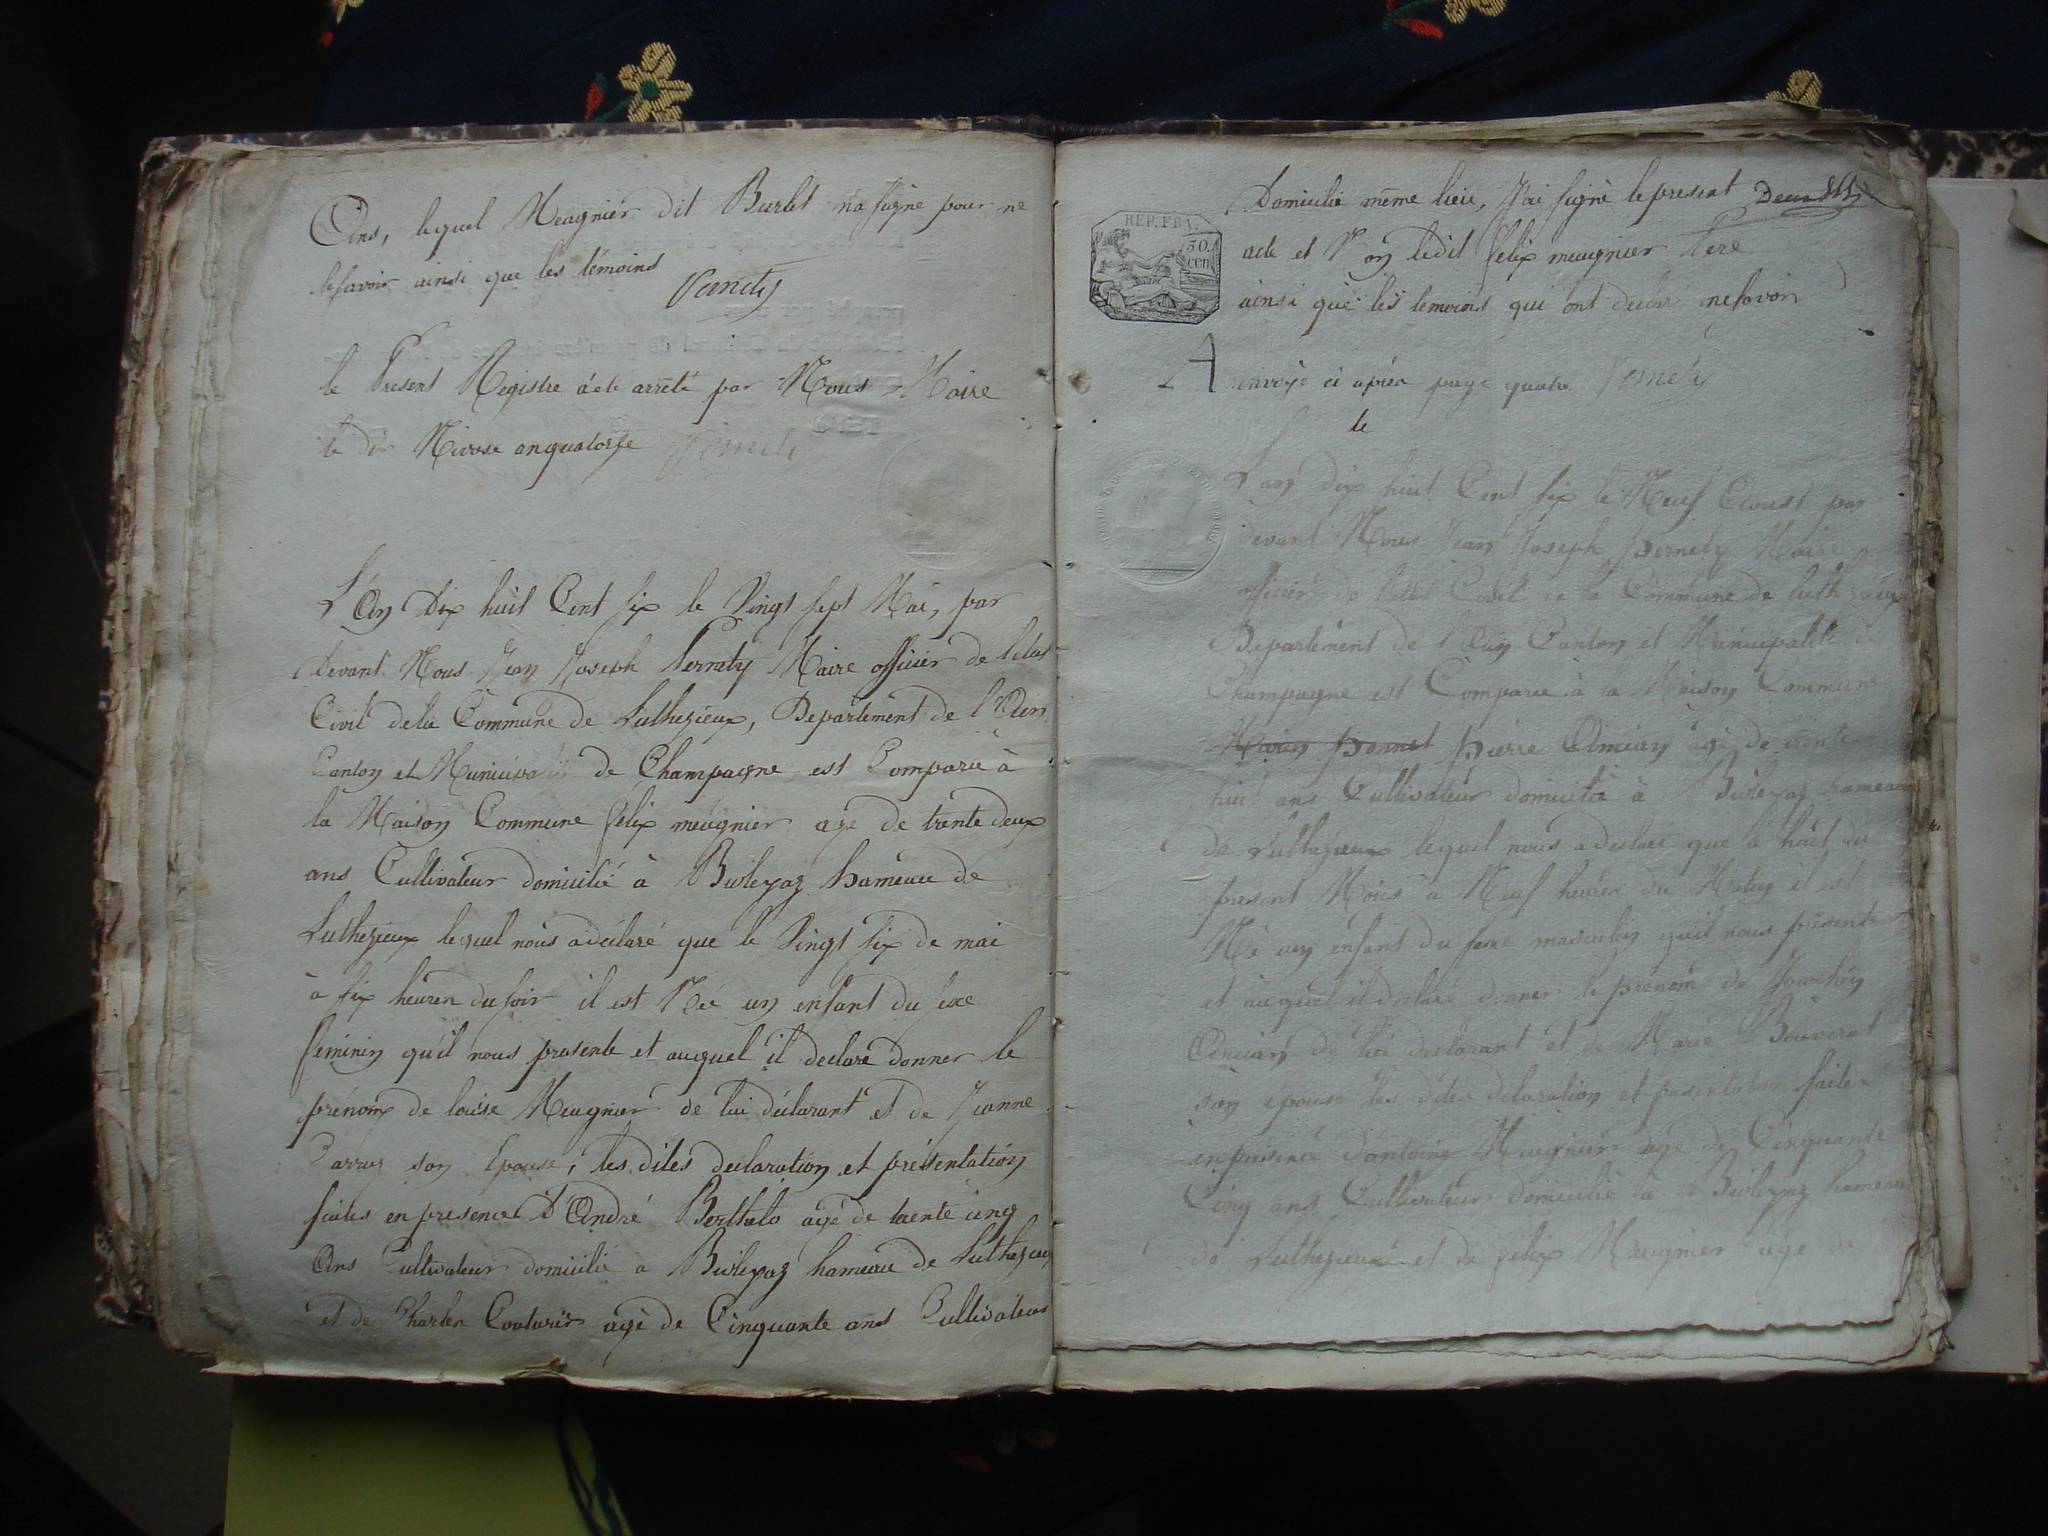 Ains, lequel Meugnier dit Burlet n'a signé pour ne
le savoir ainsi que les témoins
Pernety
le Present Registre a été arrêté par Nous Maire
le dix Nivose an quatorze Pernety
L'An Dix huit Cent six le Vingt sept Mai, par
devant Nous Jean Joseph Pernety Maire officier de l'état
Civil de la Commune de Luthezieux, Departement de l'Ain
Canton et Municipalité de Champagne est Comparu à
la Maison Commune félix meugnier agé de trente deux
ans Cultivateur domicilié à Bioleyaz hameau de
Luthezieux lequel nous a déclaré que le Vingt six de mai
à six heures du soir il est Né un enfant du sexe
féminin qu'il nous presente et auquel il declare donner le
prénom de louise Meugnier de lui déclarant et de Jeanne
son Epouse, les dites declaration et présentation
faites en presence d'André Berthelo agé de trente cinq
Ans Cultivateur domicilié a Bioleyaz hameau de Luthezieux
et de Charles agé de Cinquante ans Cultivateur
REP. FRA.
50.
cen
Domicilié même lieu, J'ai signé le present
acte et Non ledit félix meugnier Pere
ainsi que les temoins qui ont declaré ne savoir
renvoyé ci après page quatre Pernety
le
L'an Dix huit Cent six le Neuf Aoust par
devant Nous Jean Joseph pernety Maire
officier de l'état Civil de la Commune de luthezieux
Departement de l'Ain Canton et Municipalité de
Champagne est Comparu à la Maison Commune
pierre agé de trente
huit ans Cultivateur domicilié à Bioleyaz hameau
de Luthezieux lequel nous a declaré que le huit du
présent Mois à Neuf heures du Matin il est
Né un enfant du sexe masculin qu'il nous présente
et auquel il declare donner le prénom de
de lui declarant et de Marie
son épouse les dites déclaration et présentation faites
en présence d'antoine Meugnier agé de Cinquante
Cinq ans Cultivateur domicilié à Bioleyaz hameau
de Luthezieux et de félix Meugnier agé de